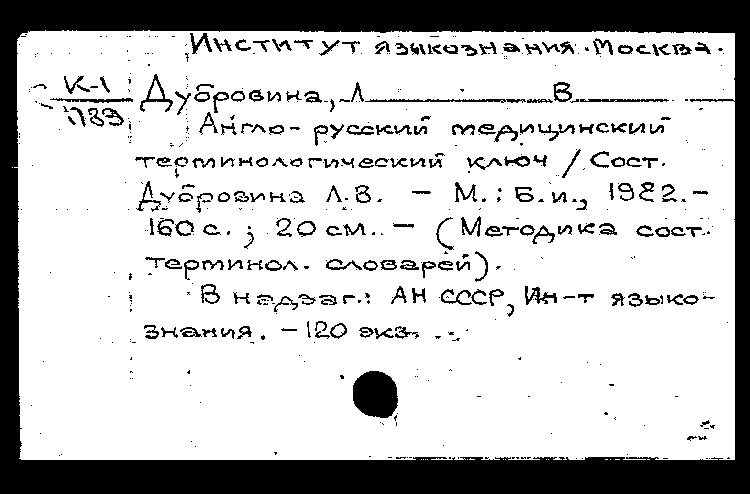 Институт языкознания. Москва.
К-1
1789
Дубровина, Л В
Англо-русский медицинский
терминологический ключ / Сост.
Дубровина Л.В. — М.: Б.и., 1982.—
160 с.; 20 см. — (Методика сост.
терминол. словарей).
В надзаг.: АН СССР, Ин-т языко-
знания. — 120 экз.